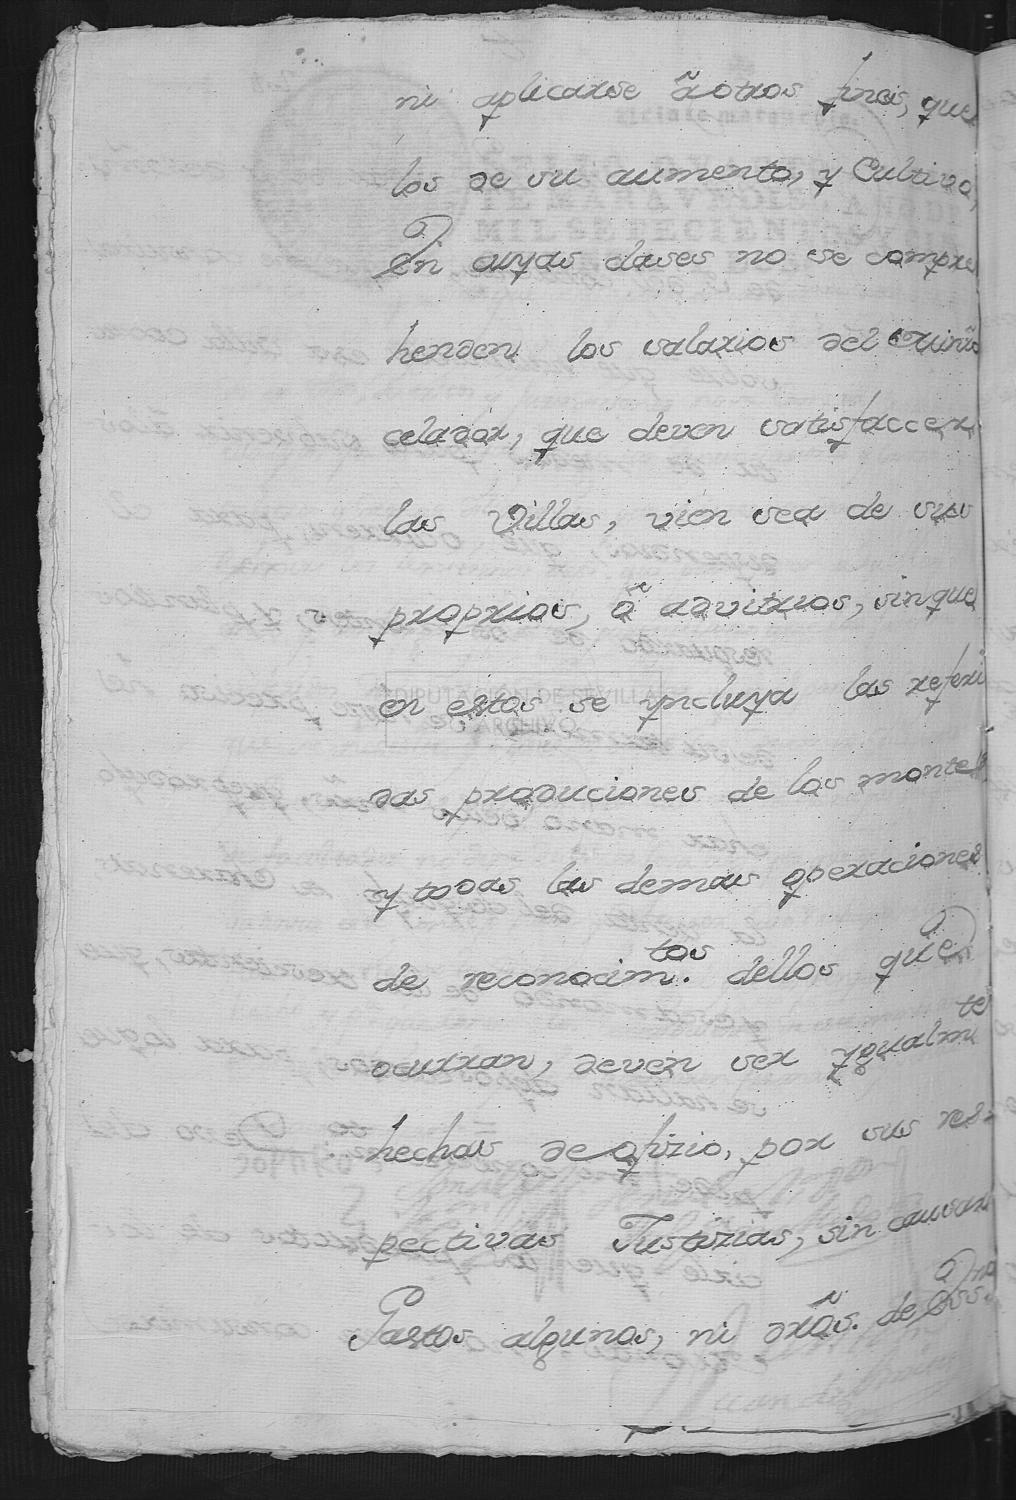 ni aplicarse ã otros fines, que
los de su aumento, y Cultivo,
En cuyas clases no se compre
henden los salarios del
celador, que deven satisfaccer
las Villas, vien sea de sus
proprios, õ advitrios, sin que
en estos se yncluya las referi
das produciones de los montes
y todas las demas operaciones
de reconocim.tos dellos que
ocurran, deven ser ygualmte
hechas de ofizio, por sus res-
pectivas Justizias, sin causar
Gastos algunos, ni dr̃os. de
DIPUTACION DE SEVILLA
ARCHIVO